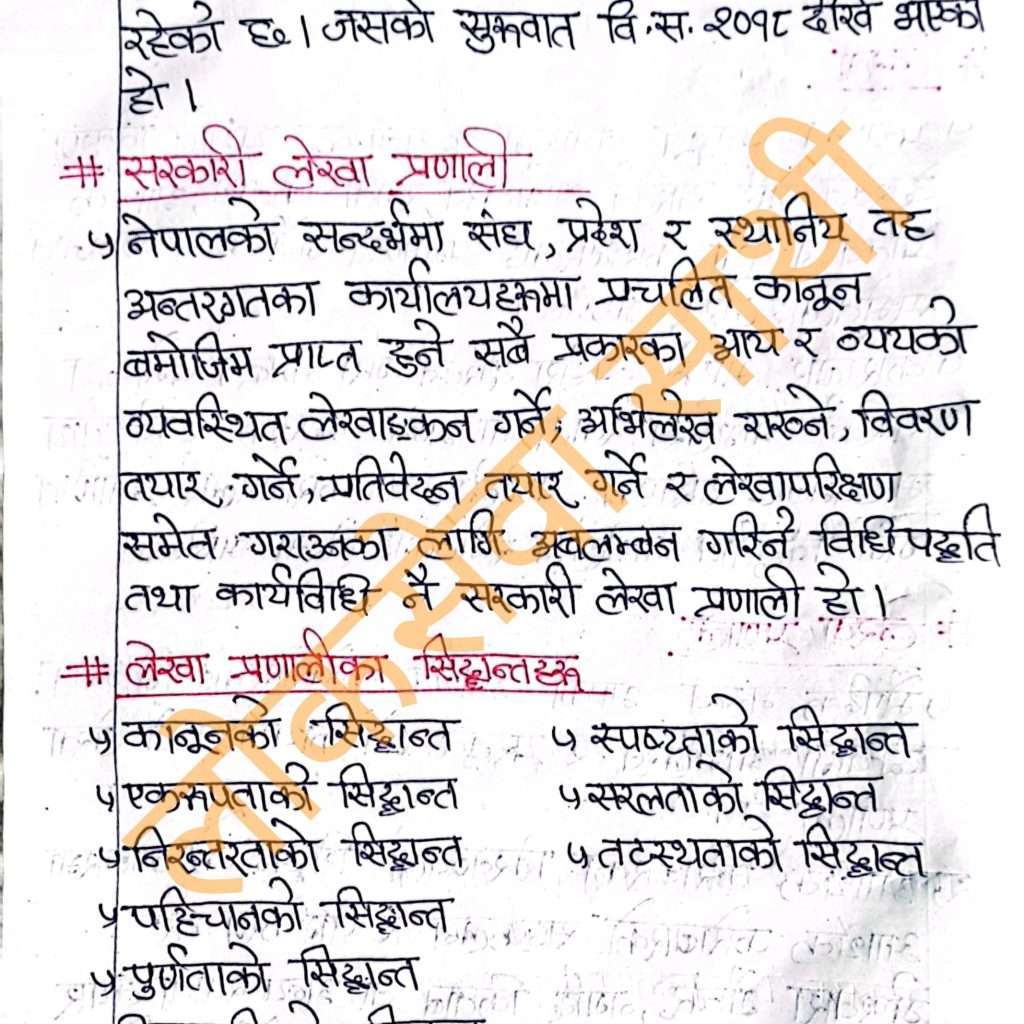 रहेको छ। जसको सुरूवात वि.स. २०१८ देखि भएको
हो ।
# सरकारी लेखा प्रणाली
नेपालको सन्दर्भमा संघ, प्रदेश र स्थानिय तह
अन्तरगतका कार्यालयहरूमा प्रचलित कानून
बमोजिम प्राप्त हुने सबै प्रकारका आय र व्ययको
व्यवस्थित लेखाङ्कन गर्ने, अभिलेख राख्ने, विवरण
तयार गर्ने, प्रतिवेदन तयार गर्ने र लेखापरिक्षण
समेत गराउनका लागि अवलम्बन गरिने विधि पद्धति
तथा कार्यविधि नै सरकारी लेखा प्रणाली हो ।
# लेखा प्रणालीका सिद्धान्तहरू
कानूनको सिद्धान्त स्पष्टताको सिद्धान्त
एकरूपताको सिद्धान्त सरलताको सिद्धान्त
निरन्तरताको सिद्धान्त तटस्थताको सिद्धान्त
पहिचानको सिद्धान्त
पुर्णताको सिद्धान्त
लोकसेवा साथी